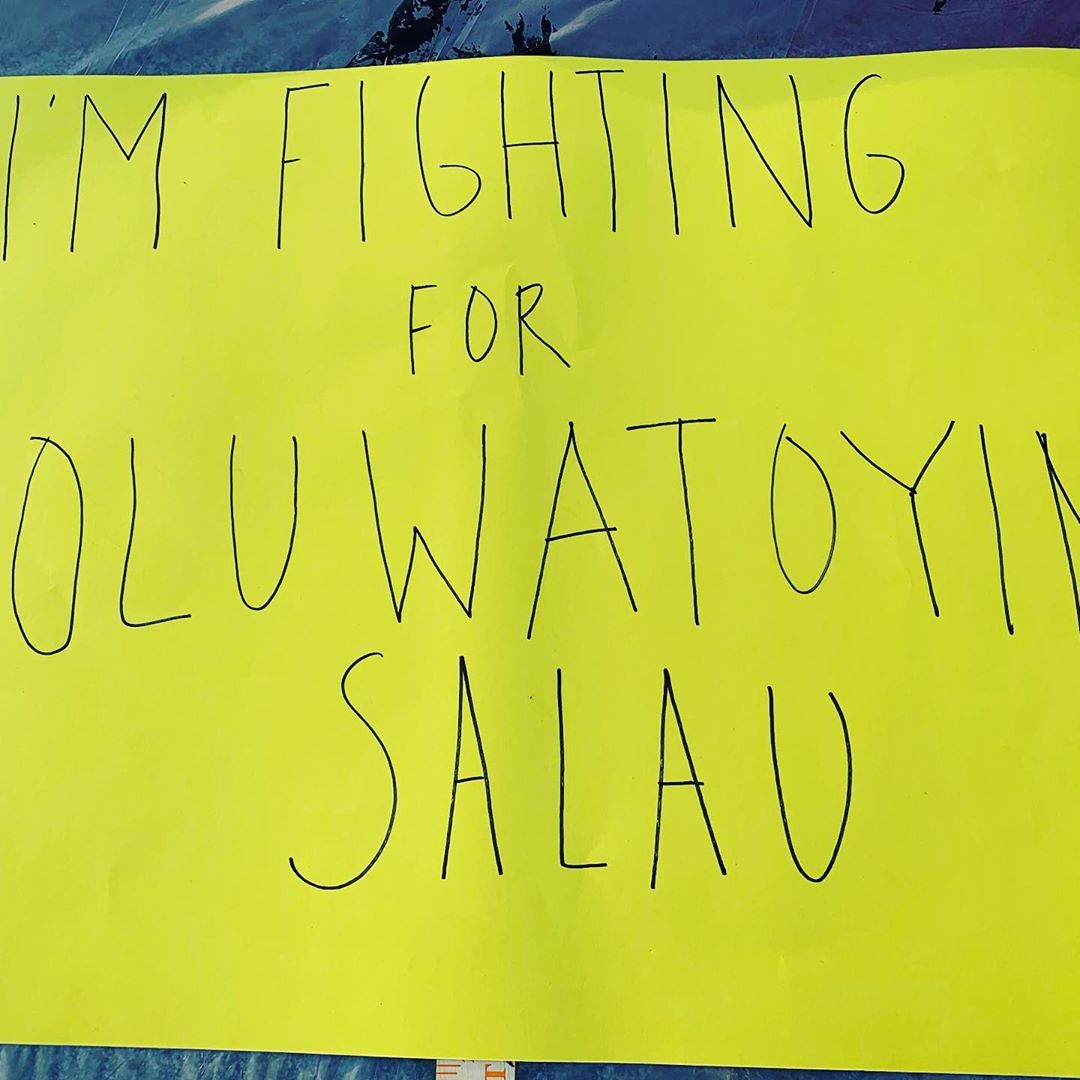 I'M FIGHTING
FOR
OLUWATOYIN
SALAU